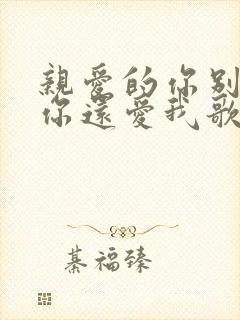 親愛的你别
你還愛我歌
綦福臻